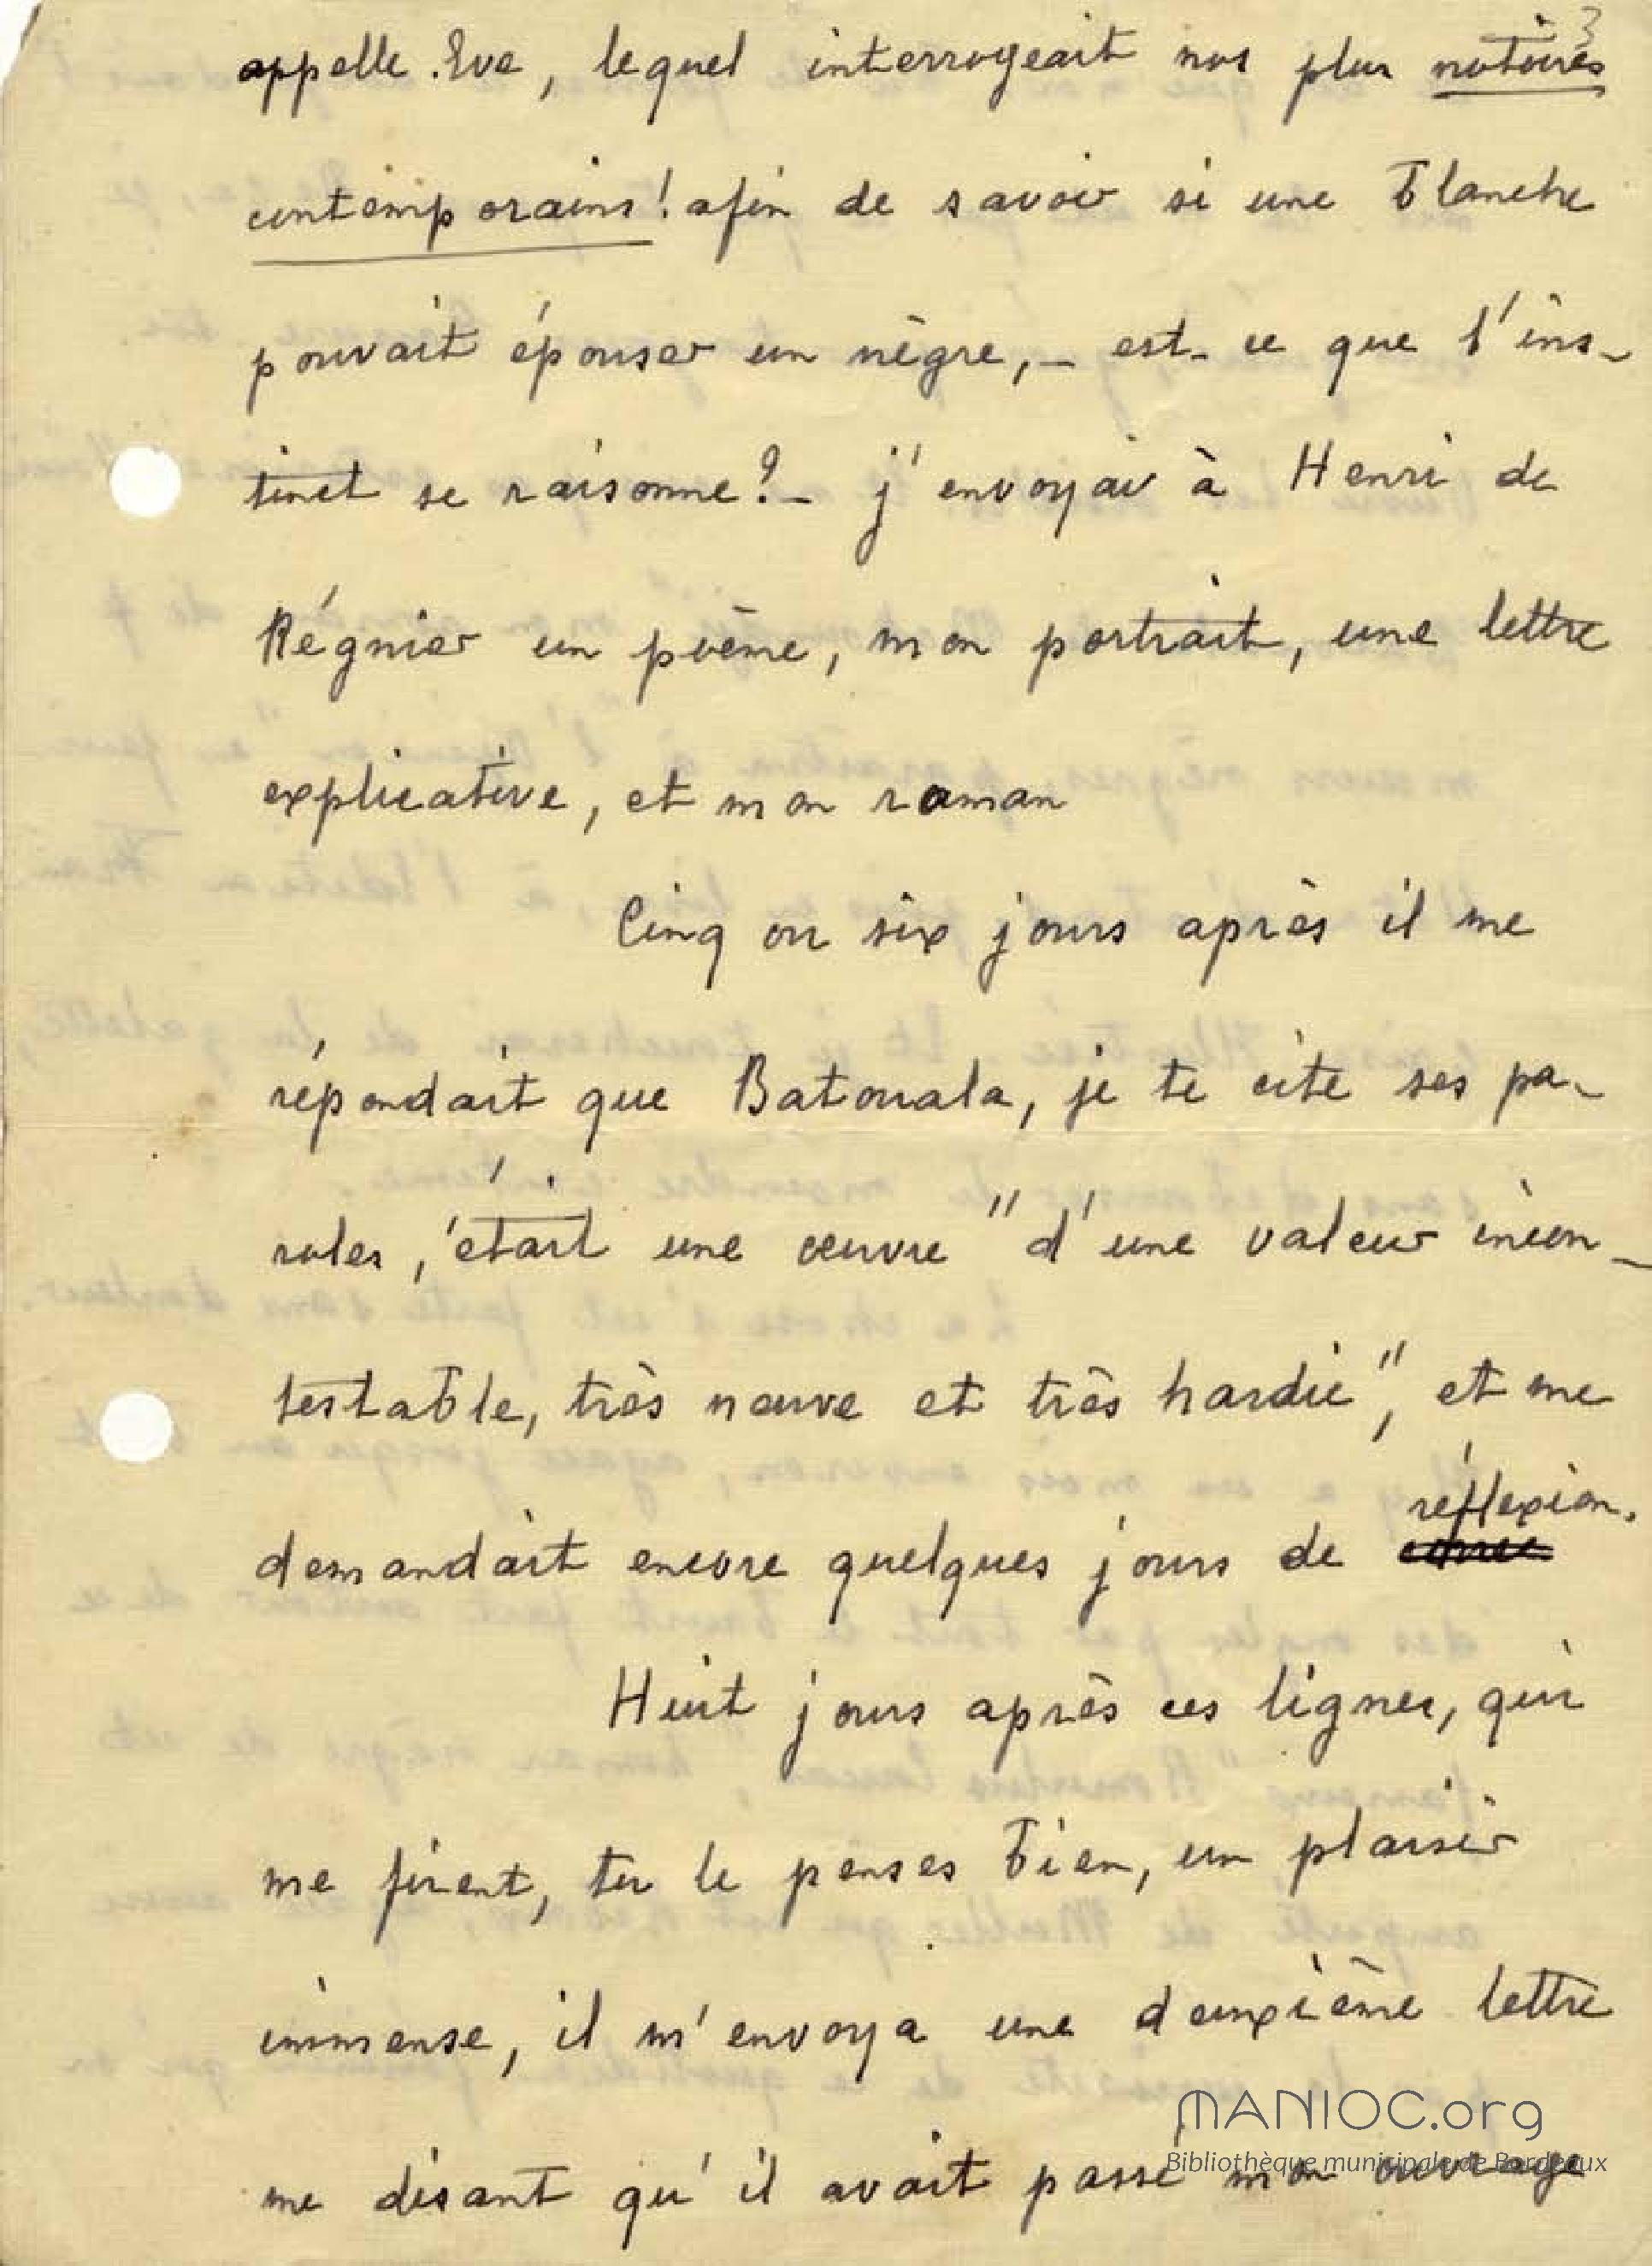 3
appelle Eve, lequel interrogeait nos plus notoires
contemporains! afin de savoir si une blanche
pouvait épouser un nègre, — est-ce que l'ins-
tinct se raisonne? — j'envoyai à Henri de
Régnier un poème, mon portrait, une lettre
explicative, et mon roman
Cinq ou six jours après il me
répondait que Batouala, je te cite ses pa-
roles, était une œuvre "d'une valeur incon-
testable, très neuve et très hardie", et me
demandait encore quelques jours de réflexion.
Huit jours après ces lignes, qui
me firent, tu le penses bien, un plaisir
immense, il m'envoya une deuxième lettre
me disant qu'il avait passé mon ouvrage
MANIOC.org
Bibliothèque municipale de Bordeaux